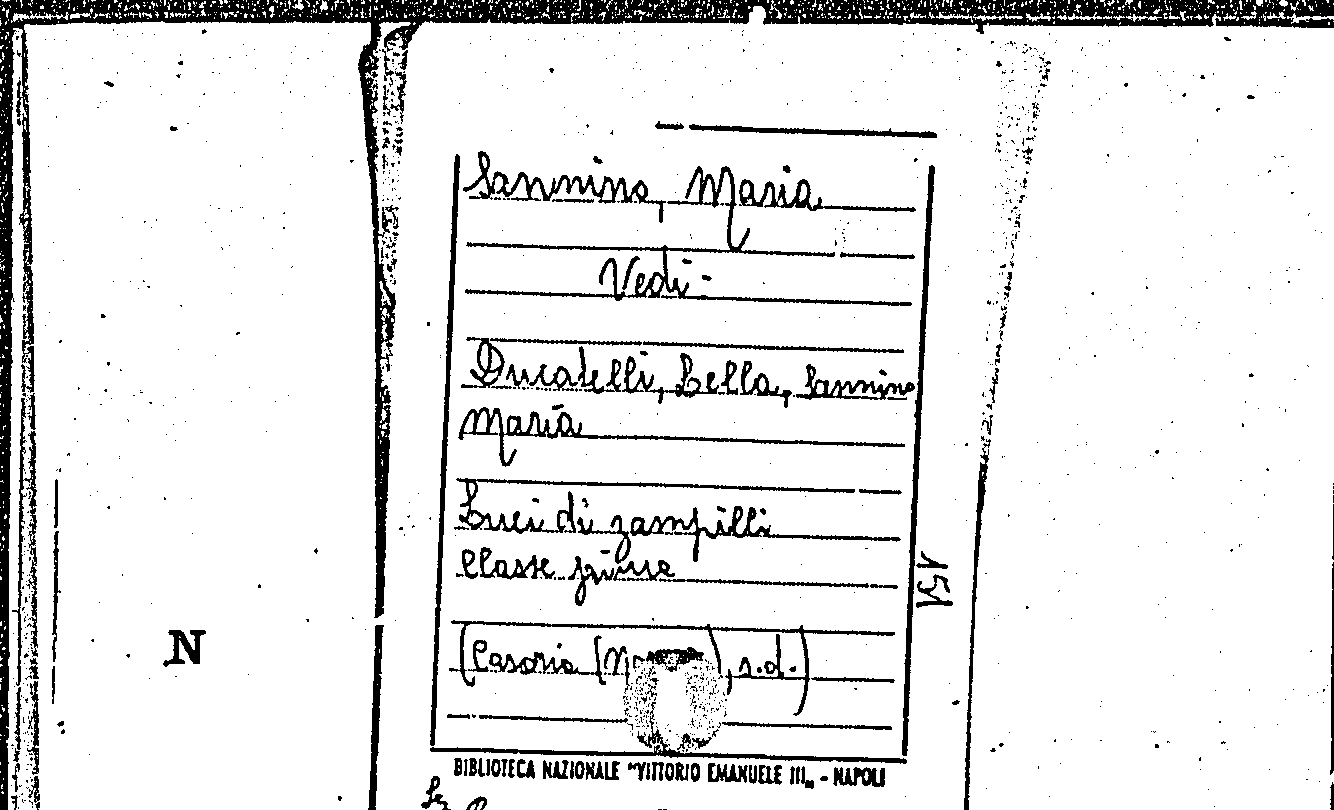 Sannino, Maria
Vedi:
Ducatelli, Lella, Sannino
Maria
Luci di zampilli
Classe prima
(Casoria ( ), s.d.)
151
N
BIBLIOTECA NAZIONALE "VITTORIO EMANUELE III„ - NAPOLI